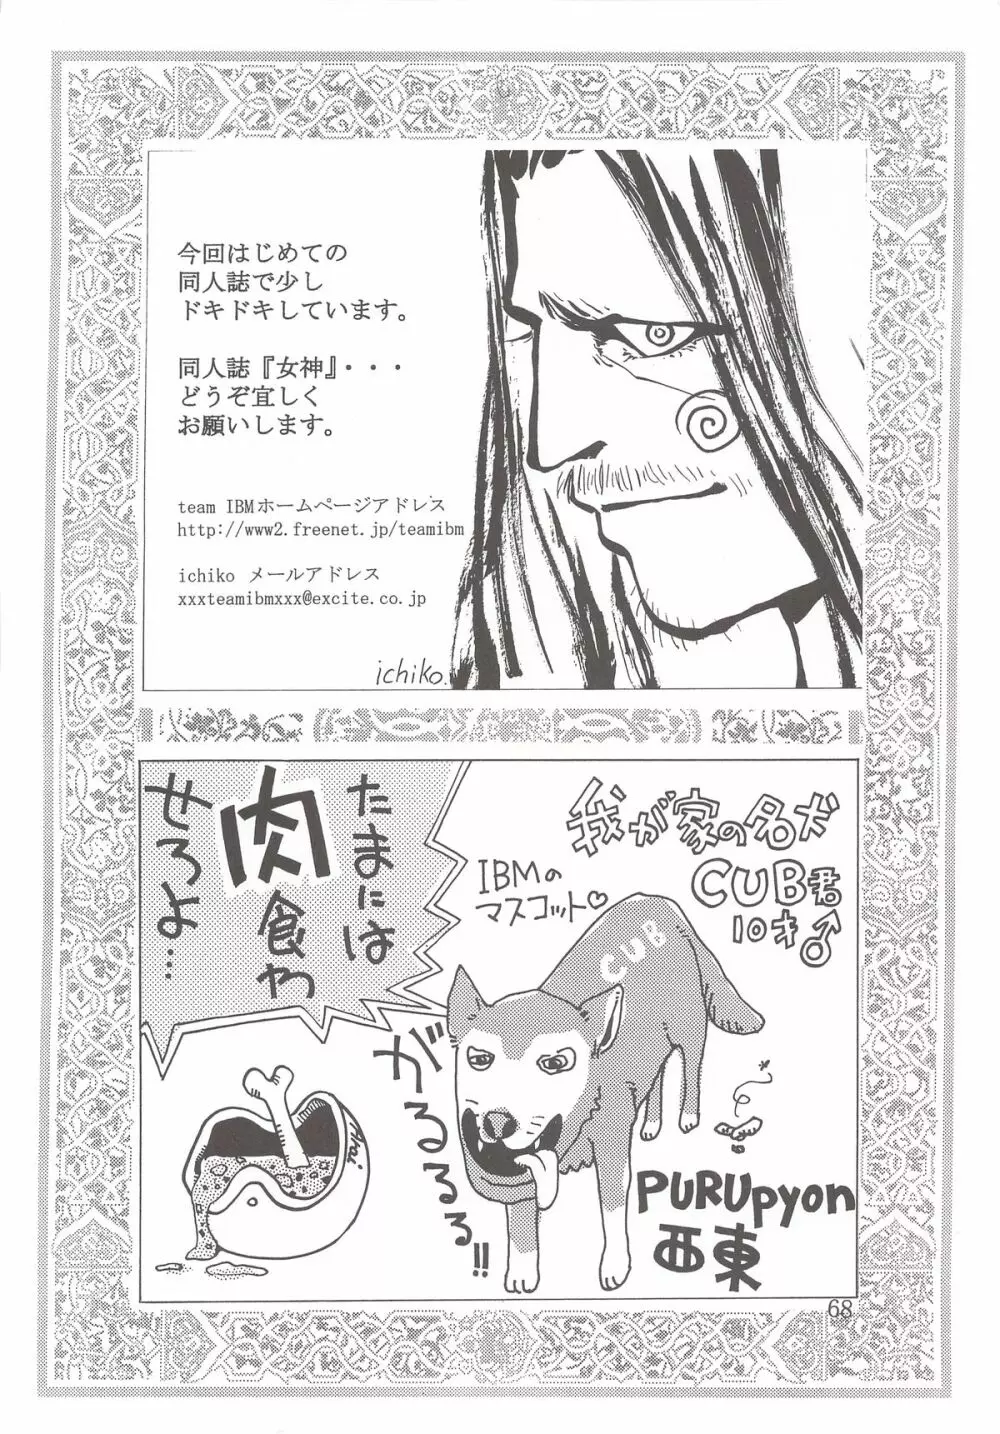 今回はじめての
同人誌で少し
ドキドキしています。
同人誌『女神』・・・
どうぞ宜しく
お願いします。
team IBMホームページアドレス
http://www2.freenet.jp/teamibm
ichiko メールアドレス
xxxteamibmxxx@excite.co.jp
ichiko.
たまには
肉食わ
せろよ……
我が家の名犬
CUB君
10才♂
IBMの
マスコット♡
CUB
がるるるる!!
Arai
PURUpyon
西東
68